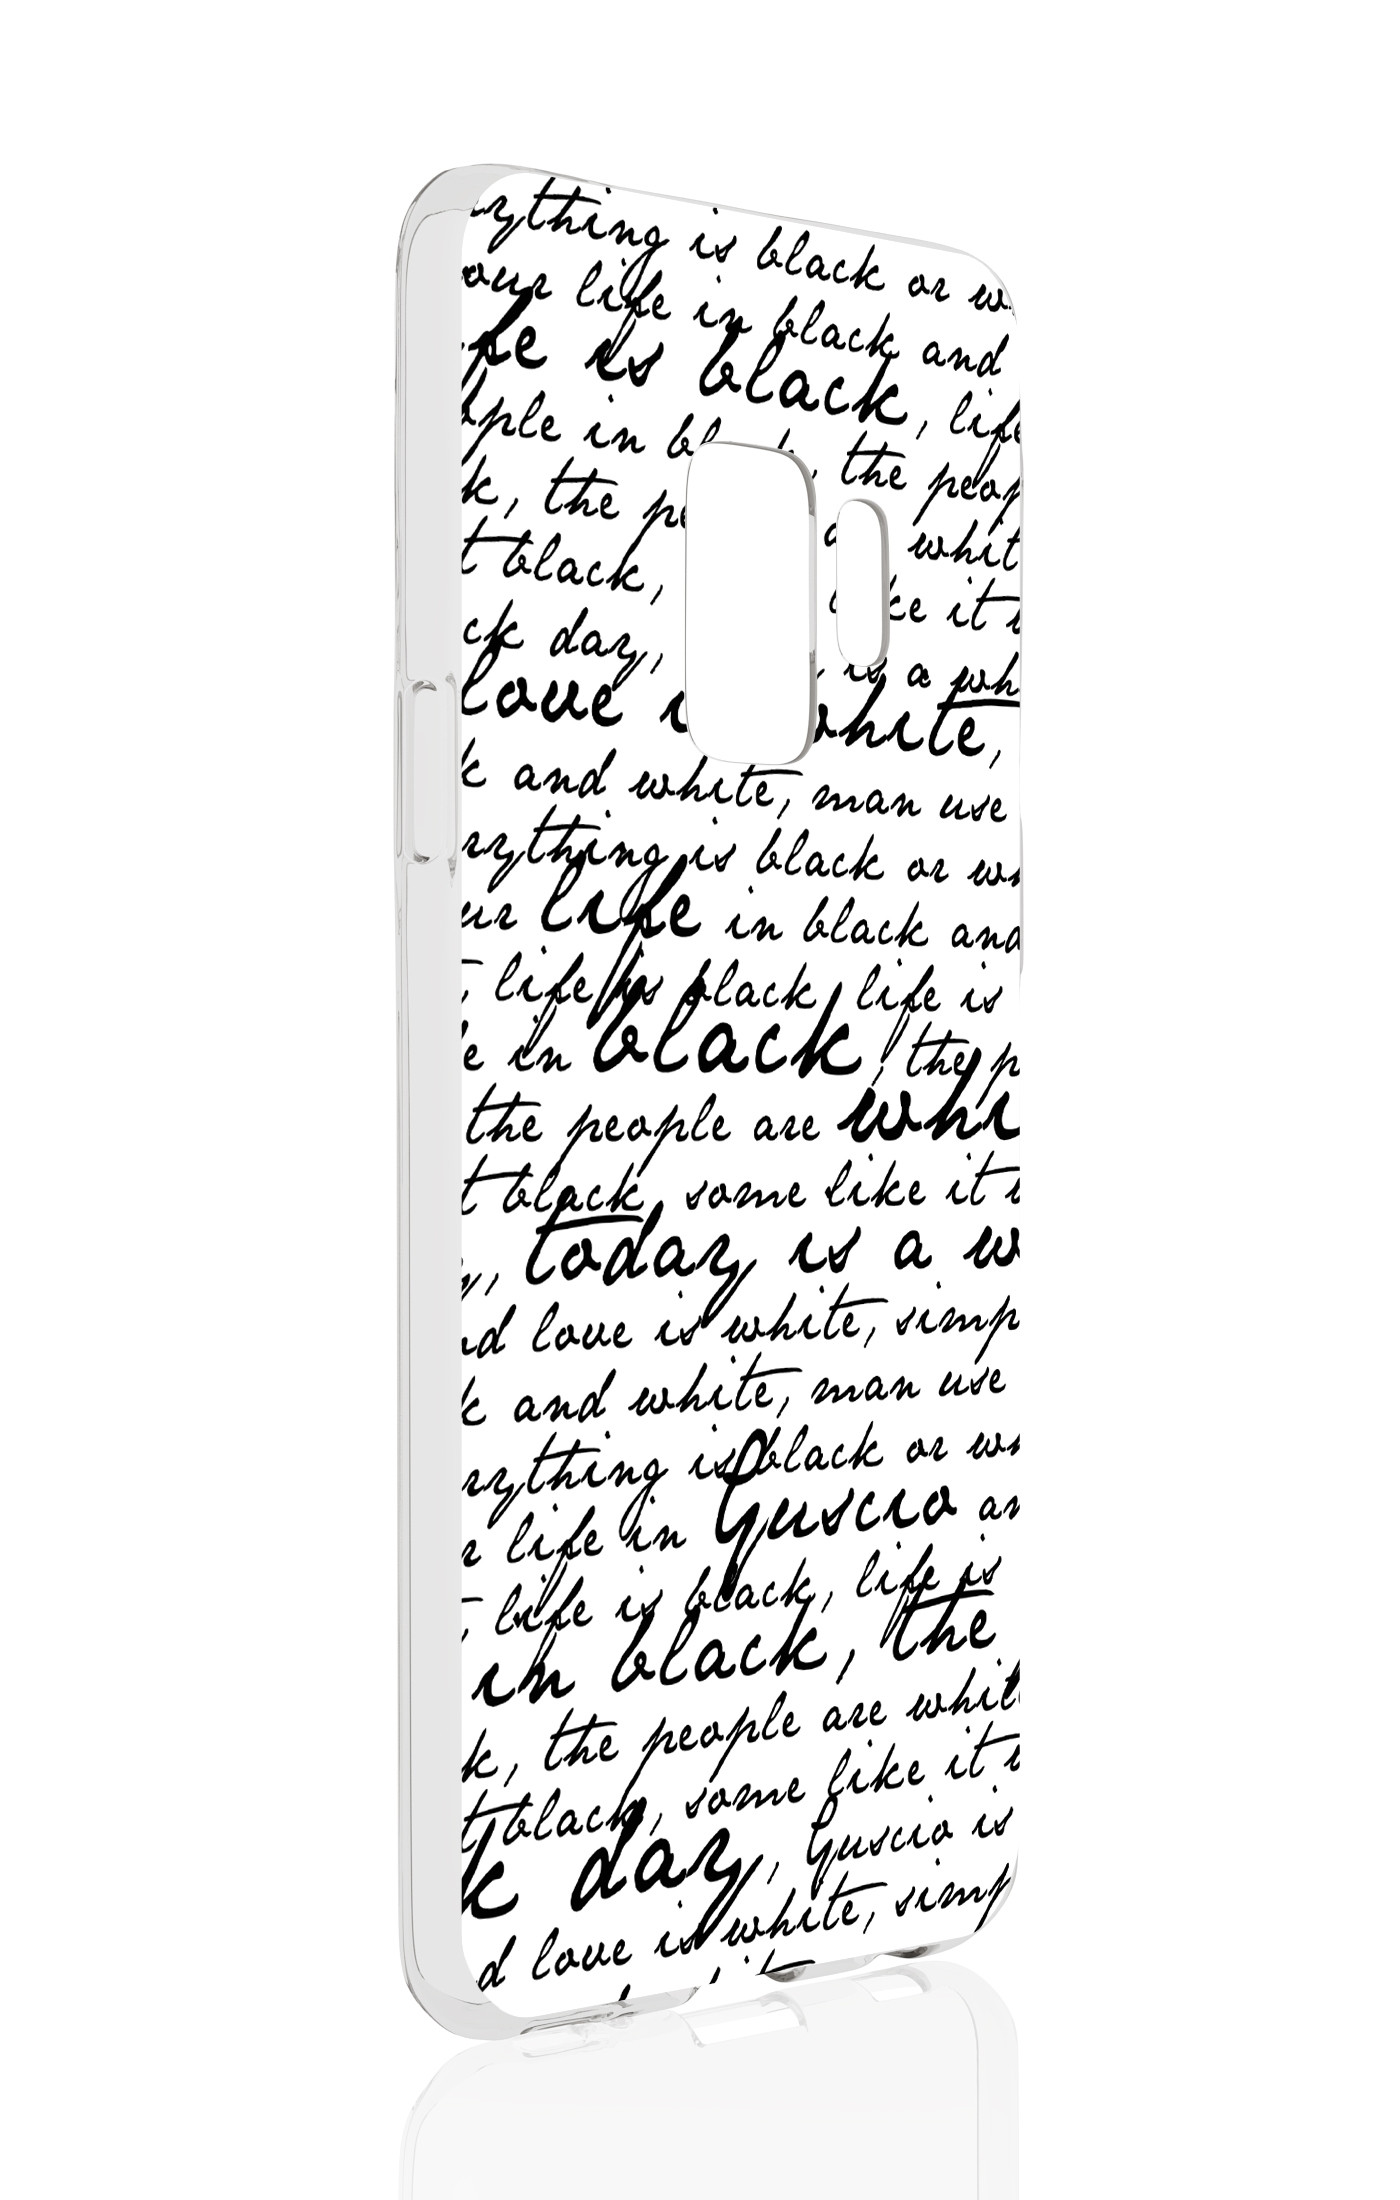 rything is black or w
our life in black and
fe is black, life
ople in bl , the peop
k, the pe whit
t black, ke it
ck day, is a wh
love i white,
k and white, man use
rything is black or wh
ur life in black and
, life is black, life is
e in black, the p
the people are whi
t black, some like it
y, today is a w
nd love is white, simp
k and white, man use
rything is black or wh
r life in Guscio an
, life is black, life is
in black, the
k, the people are whit
t black, some like it
k day, Guscio is
d love is white, simp